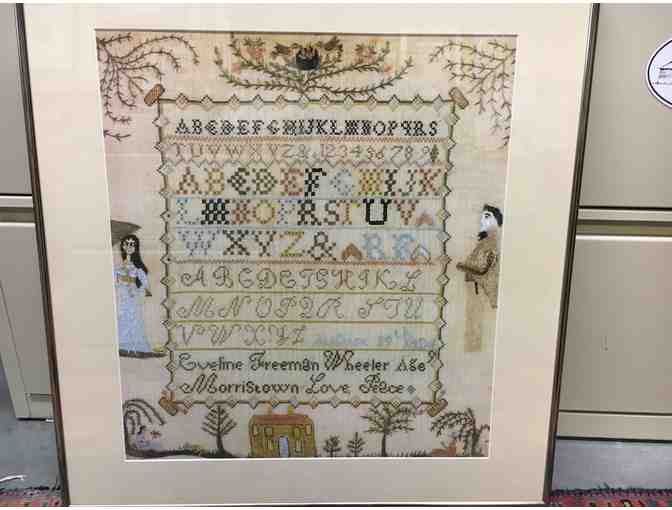 ABCDEFGHIJKLMNOPQRS
TUVWXYZ&123456789
ABCDEFGHIJK
LMNOPRSTUV
WXYZ&
ABCDEFGHIKL
MNOPQRSTU
VWXYZ
Eveline Freeman Wheeler Age
Morristown Love Peace